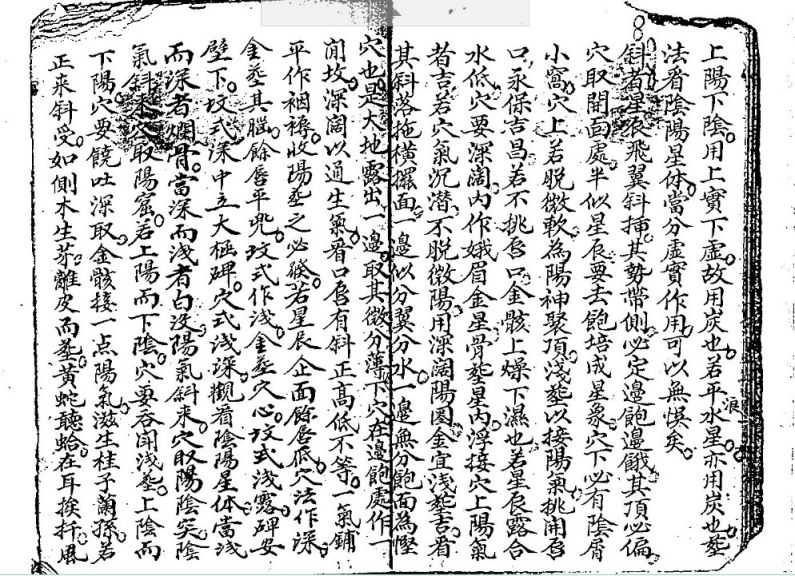 上陽下陰用上實下虛故用炭也若平水星亦用炭也塟
浪
法看陰陽星体當分虛實作用可以無悞矣
斜者星辰飛翼斜揷其勢帶側必定邉飽邉餓其頂必偏
穴取開面處半似星辰要去飽培成星象穴下必有陰屑
小窩穴上若脫微軟為陽神聚頂淺塟以接陽氣挑開唇
口永保吉昌若不挑唇口金骸上燥下濕也若星辰露合
水低穴要深濶内作娥眉金星骨塟星内浮接穴上陽氣
者吉若穴氣沉潜不脫微陽用深濶陽圓金宜淺塟吉看
其斜落拖橫擺面一邉似分翼分水一邉無分飽面為慳
穴也是大地露出一邉取其微分薄下穴在邉飽處作一
開坟深濶以通生氣看口唇有斜正高低不等一氣鋪
平作裀褥收陽塟之必發若星辰企面餘唇低穴法作深
金塟其腦餘唇平兜坟式作淺金塟穴心坟式淺露碑安
壁下坟式深中立大極碑穴式淺深觀看陰陽星体當淺
而深者爛骨當深而淺者白没陽氣斜来穴取陽陰突陰
氣斜来穴取陽窟若上陽而下陰穴要吞開淺塟上陰而
下陽穴要饒吐深取金骸接一点陽氣滋生桂子蘭孫若
正来斜受如側木生芽離皮而塟黃蛇聽蛤在耳挨扦風